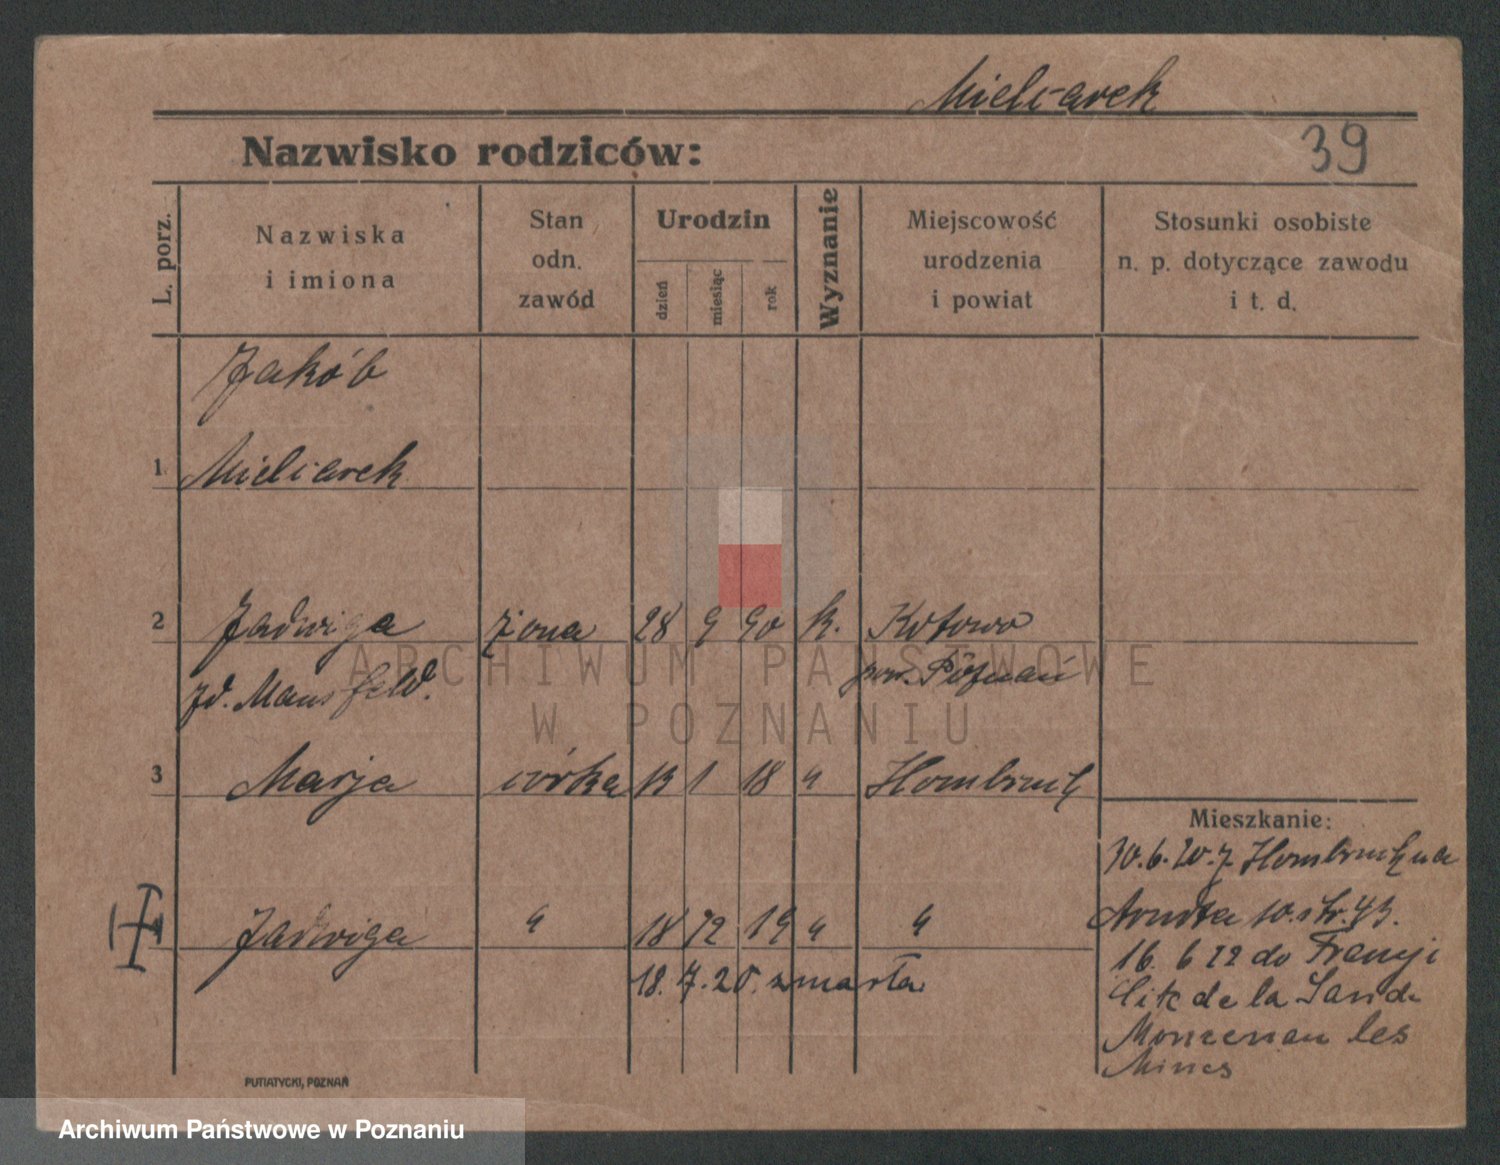 Mielcarek
39
Nazwisko rodziców:
L. porz.
Nazwiska
i imiona
Stan
odn.
zawód
Urodzin
dzień
miesiąc
rok
Wyznanie
Miejscowość
urodzenia
i powiat
Stosunki osobiste
n. p. dotyczące zawodu
i t. d.
Jakób
1 Mielcarek
2 Jadwiga żona 28 9 90 k. Kotowo
zd. Mansfeld. pow. Poznań
3 Marja córka 13 1 18 " Hombruch
Jadwiga " 18 12 19 " "
18. 7. 20. zmarła.
Mieszkanie:
30. 6. 20. z Hombruch na
10. str. 43.
16. 6 22 do Francji
Cite de la
les
Mines
PUTIATYCKI, POZNAŃ
ARCHIWUM PAŃSTWOWE
W POZNANIU
Archiwum Państwowe w Poznaniu